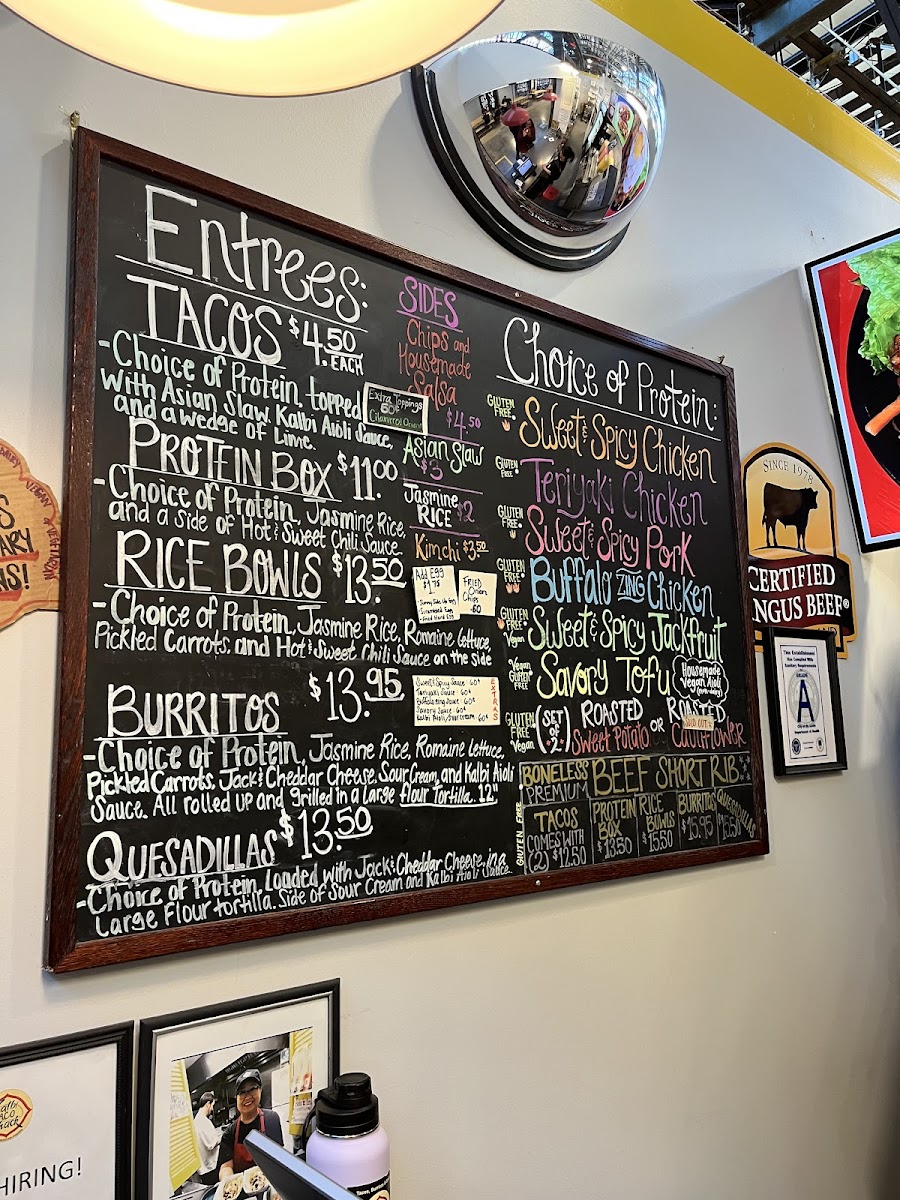 Entrees:
TACOS $4.50 EACH
-Choice of Protein, topped
with Asian Slaw, Kalbi Aioli Sauce,
and a wedge of Lime.
PROTEIN BOX $11.00
-Choice of Protein, Jasmine Rice,
and a side of Hot & Sweet Chili Sauce
RICE BOWLS $13.50
-Choice of Protein, Jasmine Rice, Romaine lettuce,
Pickled Carrots and Hot & Sweet Chili Sauce on the side
BURRITOS $13.95
-Choice of Protein, Jasmine Rice, Romaine Lettuce,
Pickled Carrots, Jack & Cheddar Cheese, Sour Cream, and Kalbi Aioli
Sauce. All rolled up and grilled in a Large flour Tortilla. 12"
QUESADILLAS $13.50
-Choice of Protein, Loaded with Jack & Cheddar Cheese, in a
Large Flour tortilla. Side of Sour Cream and Kalbi Aioli Sauce.
SIDES
Chips and
Housemade
Salsa
$4.50
Extra Toppings
60¢
Asian Slaw
$3
Jasmine
RICE $2
Kimchi $3.50
Add EGG
$1.75
Sunny Side Up Egg
Scrambled Egg
FRIED
Onion
Chips
.60
Sweet & Spicy Sauce - 60¢
Teriyaki Sauce - 60¢
Buffalo Zing Sauce - 60¢
Savory Sauce - 60¢
Kalbi Aioli, Sour cream - 60¢
EXTRAS
Choice of Protein:
GLUTEN FREE Sweet & Spicy Chicken
GLUTEN FREE Teriyaki Chicken
GLUTEN FREE Sweet & Spicy Pork
GLUTEN FREE Buffalo ZING Chicken
GLUTEN FREE Vegan Sweet & Spicy Jackfruit
Vegan GLUTEN FREE Savory Tofu
Housemade
Vegan Aioli
GLUTEN FREE Vegan (SET OF 2) ROASTED Sweet Potato OR ROASTED Cauliflower
SOLD OUT
BONELESS PREMIUM BEEF SHORT RIB
GLUTEN FREE
TACOS
COMES WITH
(2) $12.50
PROTEIN
BOX
$13.50
RICE
BOWLS
$15.50
BURRITOS
$15.95
QUESADILLAS
$15.50
SINCE 1978
CERTIFIED
ANGUS BEEF®
BRAND
This Establishment
Has Complied With
A
HIRING!